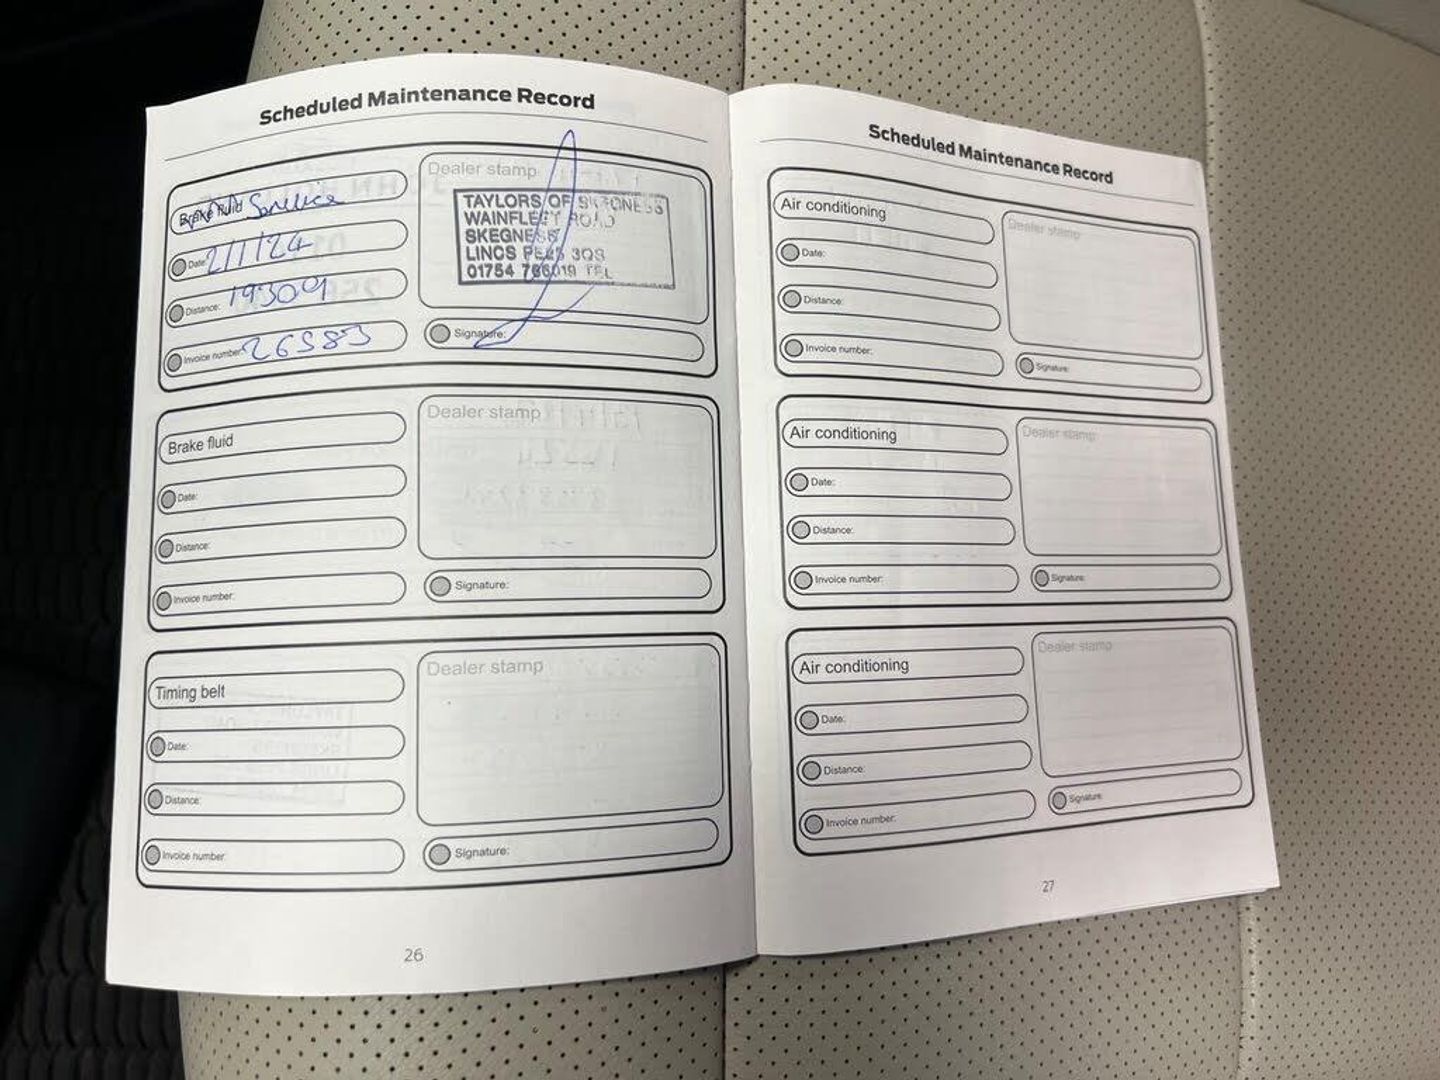 Scheduled Maintenance Record
Brake fluid Service
Date: 2/1/24
Distance: 193009
Invoice number: 26583
Dealer stamp
TAYLORS OF SKEGNESS
WAINFLEET ROAD
SKEGNESS
LINCS PE25 3QS
01754 766019 TEL
Signature:
Brake fluid
Date:
Distance:
Invoice number:
Dealer stamp
Signature:
Timing belt
Date:
Distance:
Invoice number:
Dealer stamp
Signature:
26
Scheduled Maintenance Record
Air conditioning
Date:
Distance:
Invoice number:
Dealer stamp
Signature:
Air conditioning
Date:
Distance:
Invoice number:
Dealer stamp
Signature:
Air conditioning
Date:
Distance:
Invoice number:
Dealer stamp
Signature:
27